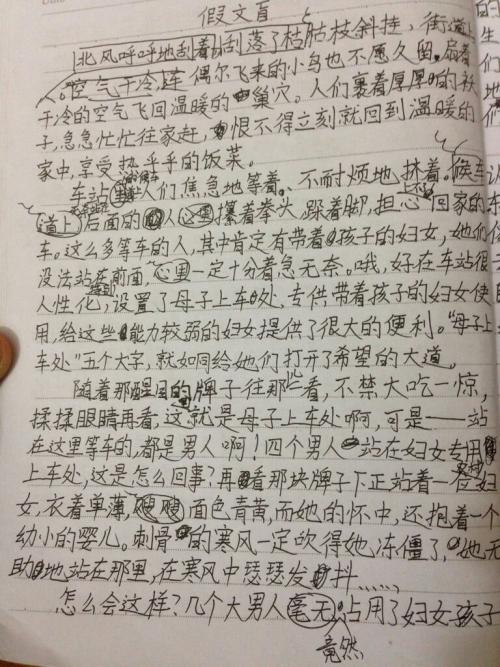 假文盲
北风呼呼地刮着,刮落了枯枯枝斜挂,街道上
。空气干冷,连偶尔飞来的小鸟也不愿久留。扇着
干冷的空气飞回温暖的巢穴。人们裹着厚厚的袄
子,急急忙忙往家赶,恨不得立刻就回到温暖的
家中,享受热乎乎的饭菜。
车站人们焦急地等着。不耐烦地挤着。候车
道上后面的人心里攥着拳头,跺着脚,担心回家的
车。这么多等车的人,其中肯定有带着孩子的妇女,她们
没法站在前面,心里一定十分着急无奈。哦,好在车站很
人性化,设置了母子上车处,专供带着孩子的妇女使
用,给这些能力较弱的妇女提供了很大的便利。“母子上
车处”五个大字,就如同给她们打开了希望的大道。
随着那醒目的牌子往那儿看,不禁大吃一惊,
揉揉眼睛再看,这就是母子上车处啊,可是——站
在这里等车的,都是男人啊!四个男人站在妇女专用
上车处,这是怎么回事?再看那块牌子下正站着一位妇
女,衣着单薄,嗖嗖面色青黄,而她的怀中,还抱着一个
幼小的婴儿。刺骨的寒风一定吹得她冻僵了,她无
助地站在那里,在寒风中瑟瑟发抖……
怎么会这样?几个大男人毫无占用了妇女孩子
竟然